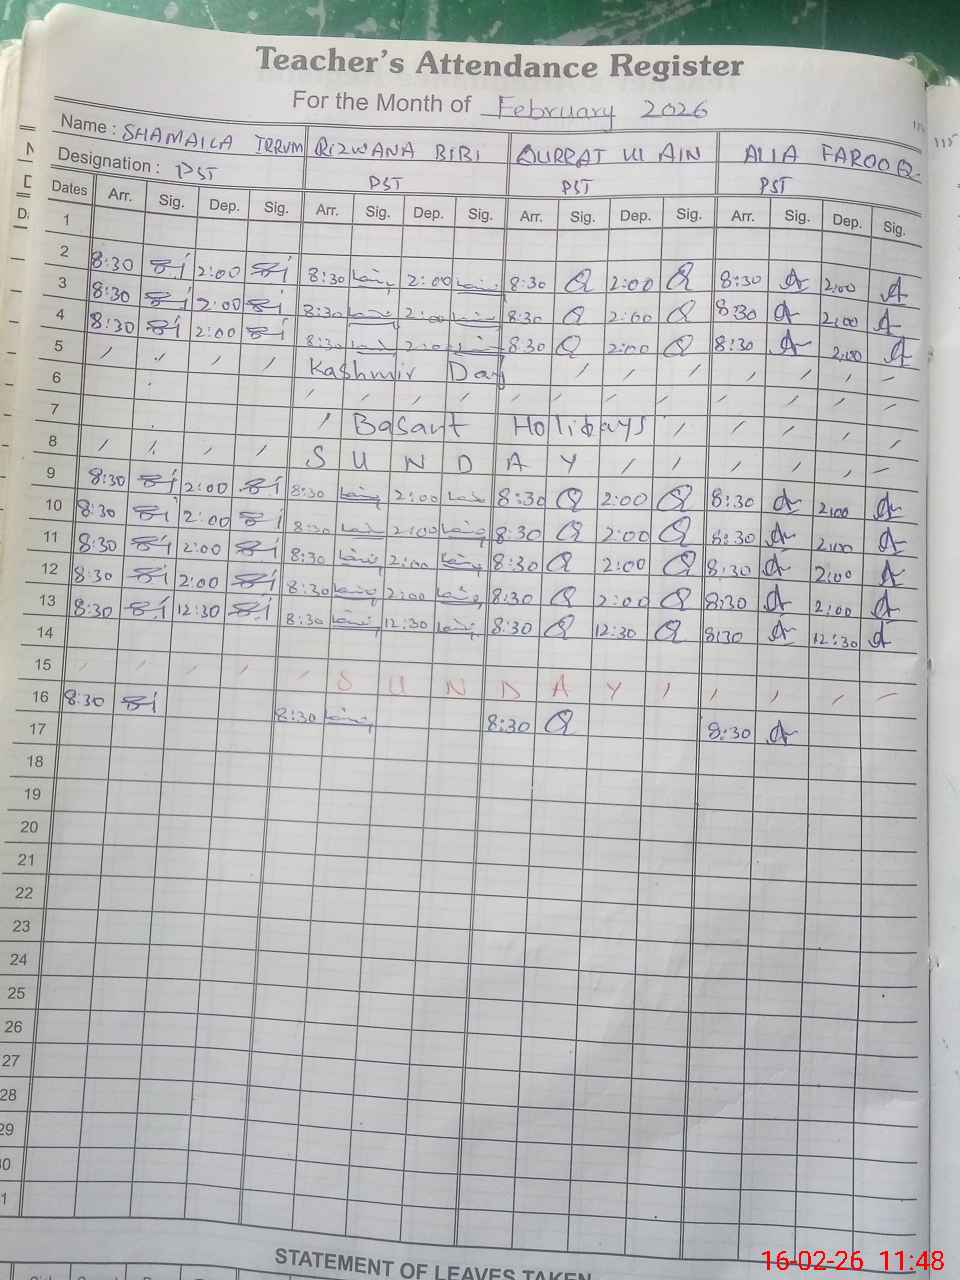 Teacher's Attendance Register
For the Month of February 2026
Name : SHAMAILA IRRUM RIZWANA BIBI QURRAT UL AIN ALIA FAROOQ
Designation : PST PST PST PST
Dates Arr. Sig. Dep. Sig. Arr. Sig. Dep. Sig. Arr. Sig. Dep. Sig. Arr. Sig. Dep. Sig.
1
2 8:30 2:00 8:30 2:00 8:30 2:00 8:30 2:00
3 8:30 2:00 8:30 2:00 8:30 2:00 8:30 2:00
4 8:30 2:00 8:30 2:00 8:30 2:00 8:30 2:00
5 Kashmir Day
6
7 Basant Holidays
8 SUNDAY
9 8:30 2:00 8:30 2:00 8:30 2:00 8:30 2:00
10 8:30 2:00 8:30 2:00 8:30 2:00 8:30 2:00
11 8:30 2:00 8:30 2:00 8:30 2:00 8:30 2:00
12 8:30 2:00 8:30 2:00 8:30 2:00 8:30 2:00
13 8:30 12:30 8:30 12:30 8:30 12:30 8:30 12:30
14
15 SUNDAY
16 8:30 8:30 8:30 8:30
17
18
19
20
21
22
23
24
25
26
27
28
29
30
31
STATEMENT OF LEAVES TAKEN
16-02-26 11:48